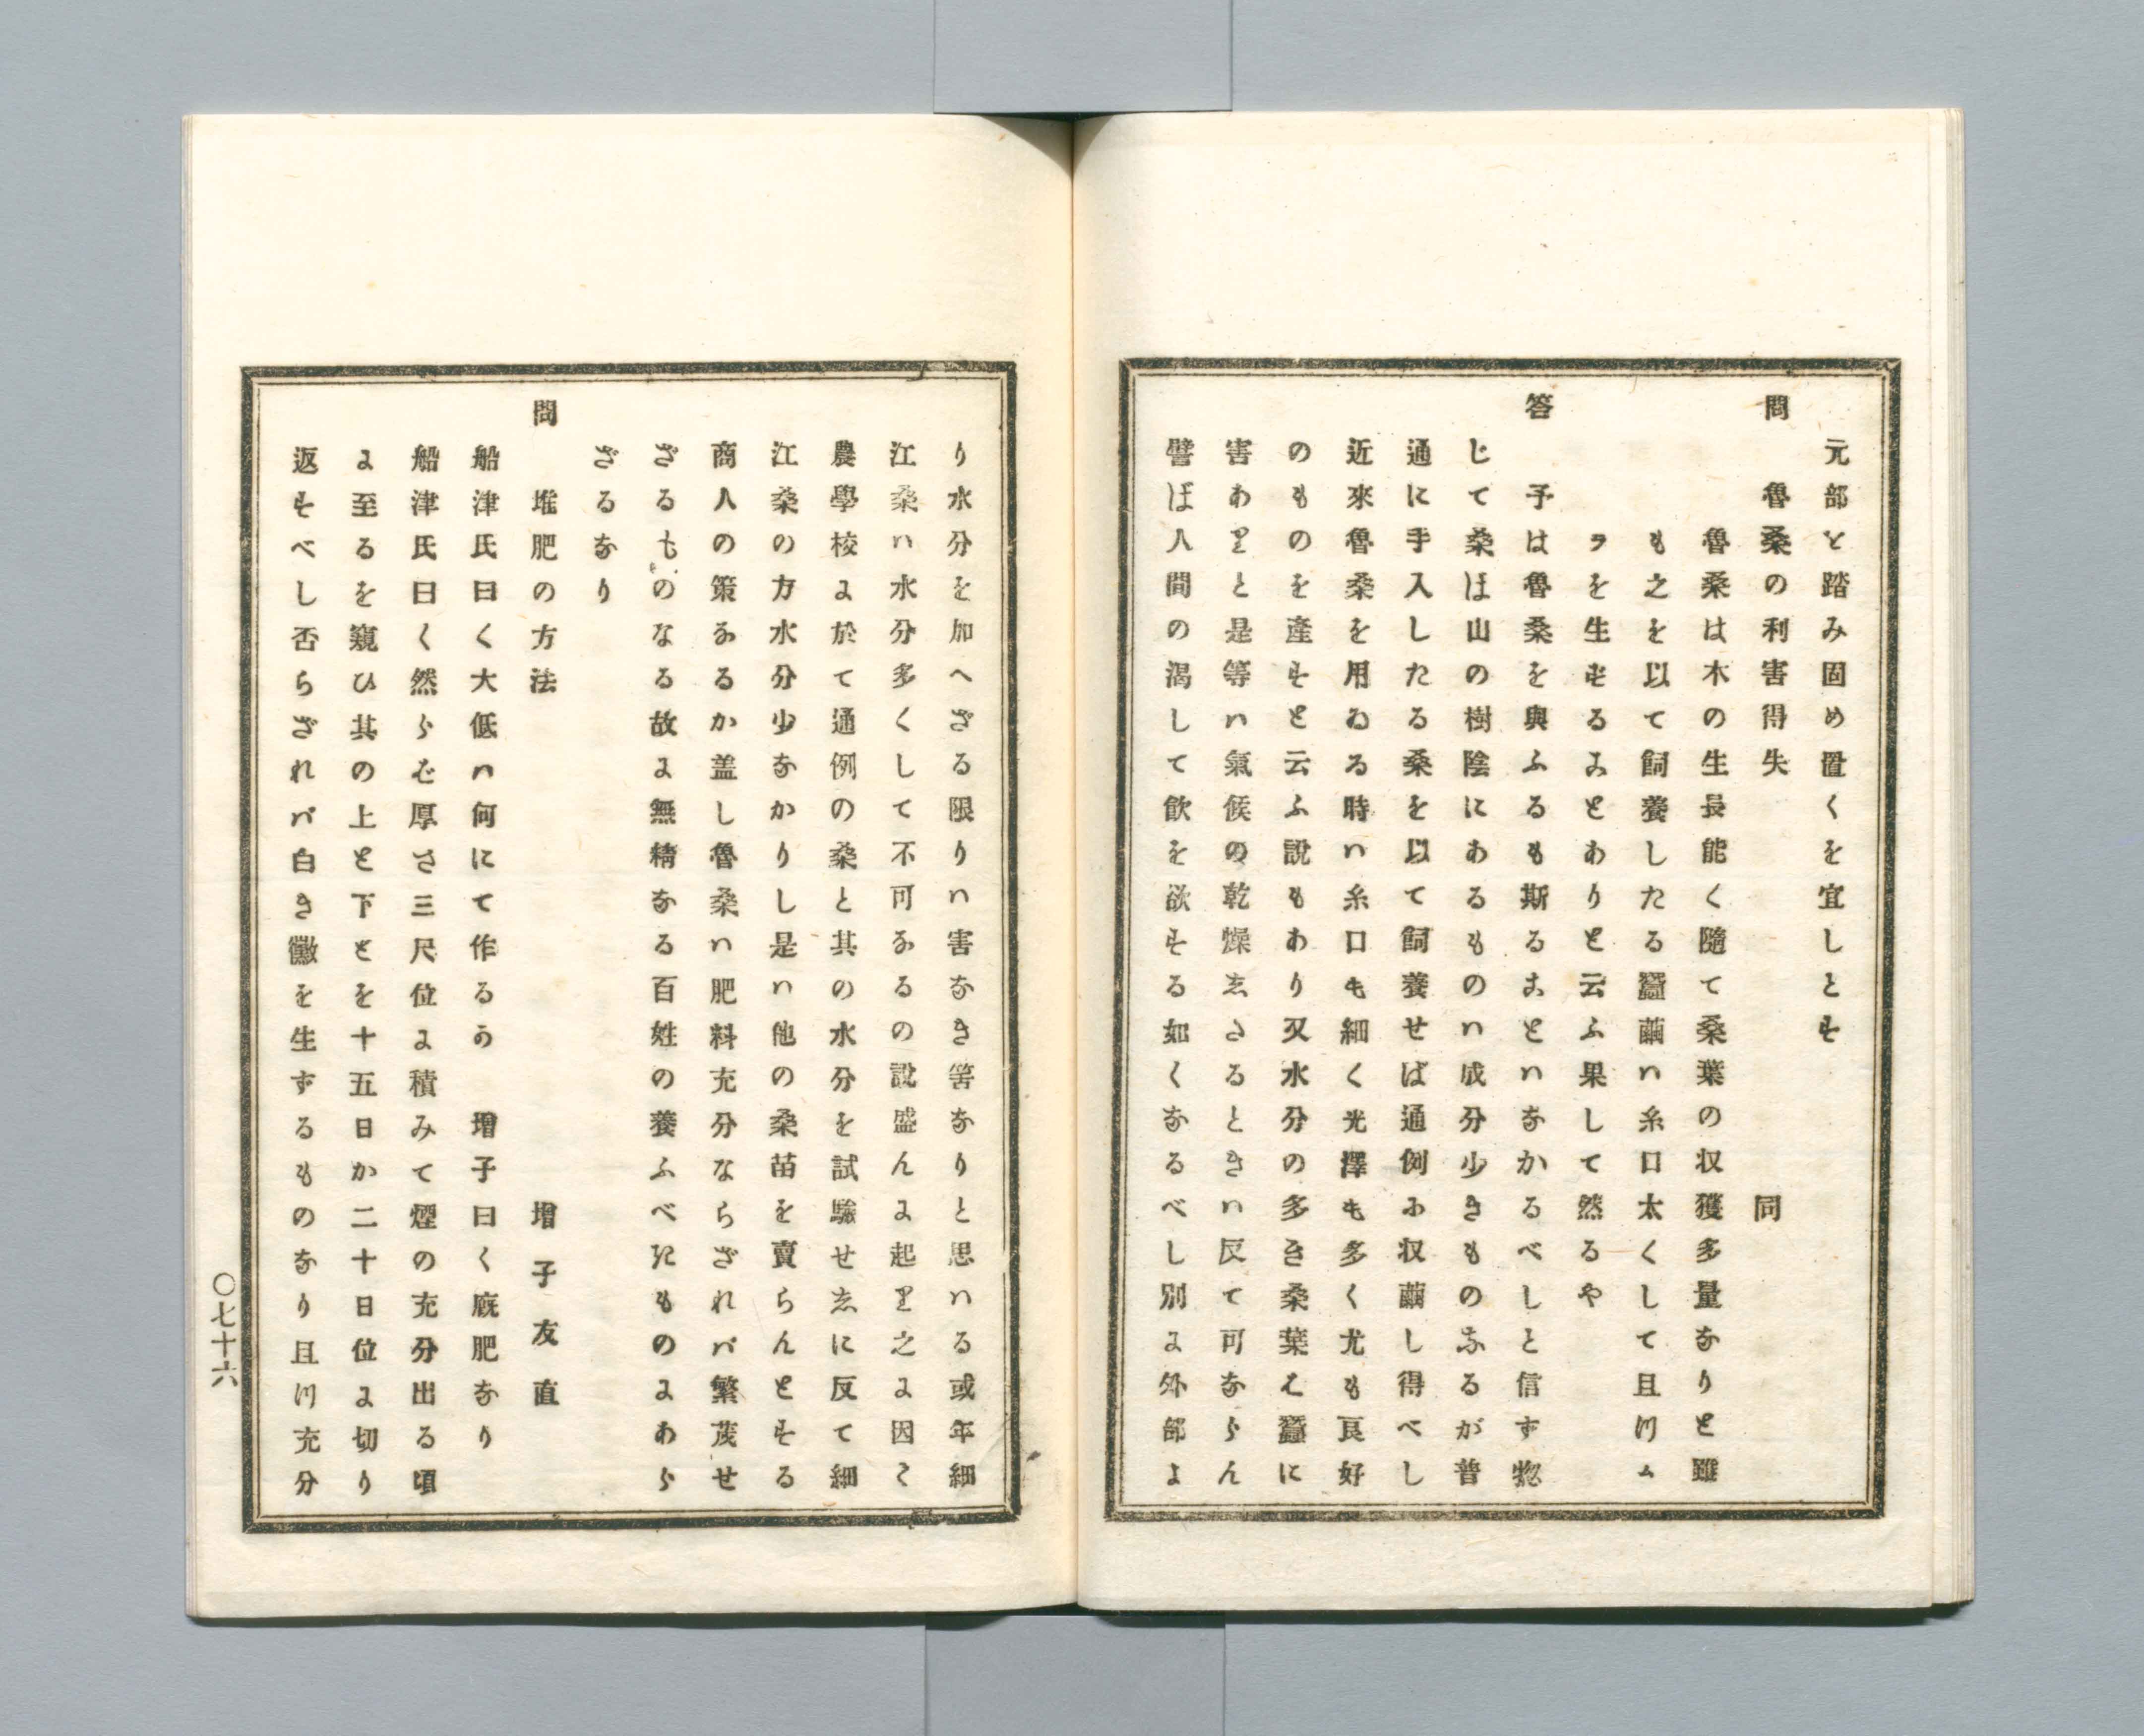 元部を踏み固め置くを宜しとす
問　魯桑の利害得失　同
魯桑は木の生長能く隨て桑葉の収獲多量なりと雖
も之を以て飼養したる蠶繭ハ糸口太くして且ツム
ラを生ずることありと云ふ果して然るや
答　予は魯桑を與ふるも斯ることハなかるべしと信ず惣
じて桑は山の樹陰にあるものハ成分少きものなるが普
通に手入したる桑を以て飼養せば通例に収繭し得べし
近來魯桑を用ゐる時ハ糸口も細く光澤も多く尤も良好
のものを産すと云ふ説もあり又水分の多き桑葉は蠶に
害ありと是等ハ氣候の乾燥しさるときハ反て可ならん
譬ば人間の渇して飲を欲する如くなるべし別に外部よ
り水分を加へざる限りハ害なき筈なりと思ハる或年細
江桑ハ水分多くして不可なるの說盛んに起り之に因て
農學校に於て通例の桑と其の水分を試驗せしに反て細
江桑の方水分少なかりし是ハ他の桑苗を賣らんとする
商人の策なるか盖し魯桑ハ肥料充分ならざれバ繁茂せ
ざるものなる故に無精なる百姓の養ふべきものにあら
ざるなり
問　堆肥の方法　增子友直
船津氏曰く大低ハ何にて作るか　增子曰く廐肥なり
船津氏曰く然らば厚さ三尺位に積みて煙の充分出る頃
に至るを窺ひ其の上と下とを十五日か二十日位に切り
返すべし否らざれバ白き黴を生ずるものなり且ツ充分
〇七十六